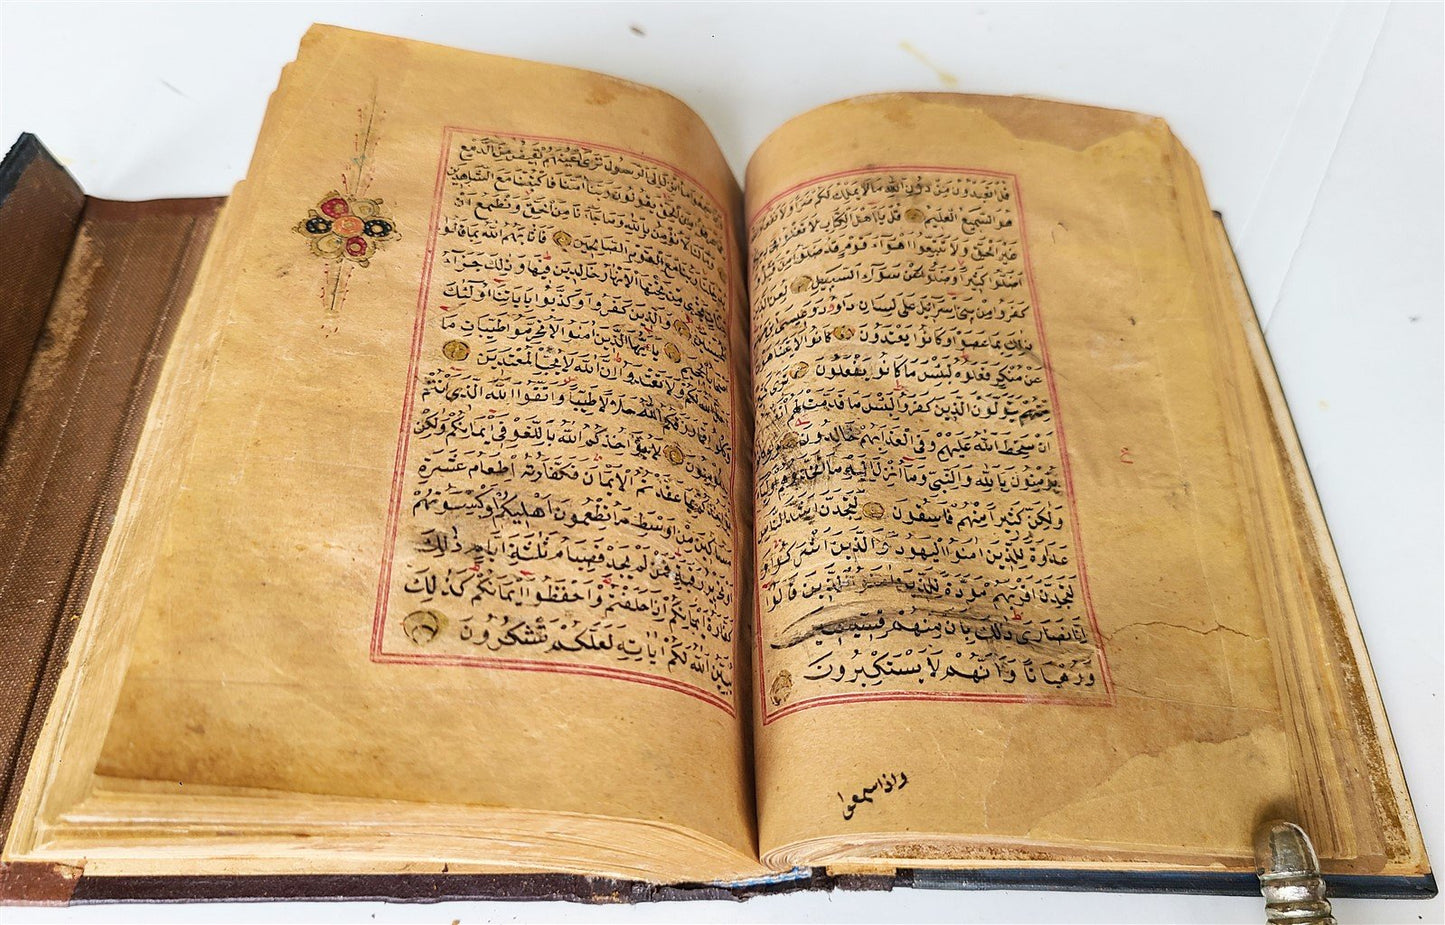 قل اتعبدون من دون الله ما لا يملك لكم ضرا ولا
هو السميع العليم قل يا اهل الكتاب لا تغلوا
غير الحق ولا تتبعوا اهواء قوم قد ضلوا من قبل
اضلوا كثيرا وضلوا عن سواء السبيل لعن
كفروا من بنى اسرائيل على لسان داود وعيسى
ذلك بما عصوا وكانوا يعتدون كانوا لا يتناهون
عن منكر فعلوه لبئس ما كانوا يفعلون ترى
منهم يتولون الذين كفروا لبئس ما قدمت لهم
ان سخط الله عليهم وفى العذاب هم خالدون
يؤمنون بالله والنبى وما انزل اليه ما اتخذوهم
ولكن كثيرا منهم فاسقون لتجدن اشد الناس
عداوة للذين امنوا اليهود والذين اشركوا
لتجدن اقربهم مودة للذين امنوا الذين قالوا
انا نصارى ذلك بان منهم قسيسين
ورهبانا وانهم لا يستكبرون
واذا سمعوا
ما انزل الى الرسول ترى اعينهم تفيض من الدمع
من الحق يقولون ربنا امنا فاكتبنا مع الشاهدين
وما لنا لا نؤمن بالله وما جاءنا من الحق ونطمع ان
ربنا مع القوم الصالحين فاثابهم الله بما قالوا
تجرى من تحتها الانهار خالدين فيها وذلك جزاء
المحسنين والذين كفروا وكذبوا باياتنا اولئك
اصحاب الجحيم يا ايها الذين امنوا لا تحرموا طيبات ما
الله لكم ولا تعتدوا ان الله لا يحب المعتدين
وكلوا مما رزقكم الله حلالا طيبا واتقوا الله الذى انتم
مؤمنون لا يؤاخذكم الله باللغو فى ايمانكم ولكن
بما عقدتم الايمان فكفارته اطعام عشرة
مساكين من اوسط ما تطعمون اهليكم او كسوتهم
او تحرير رقبة فمن لم يجد فصيام ثلثة ايام ذلك
كفارة ايمانكم اذا حلفتم واحفظوا ايمانكم كذلك
يبين الله لكم اياته لعلكم تشكرون